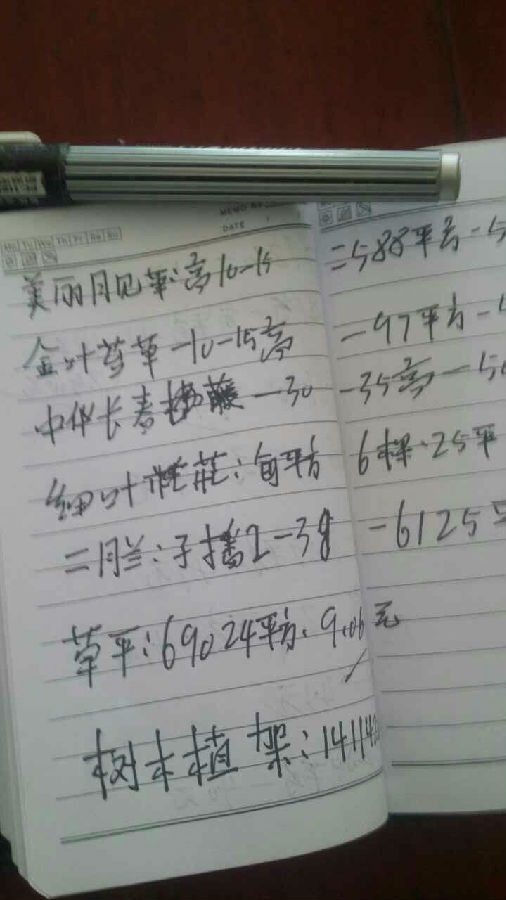 MEMO NO.
DATE
Mo Tu We Th Fr Sa Su
美丽月见草:高10-15 =588平方-5
金叶苔草-10-15高 -97平方-
中华长春藤-30 -35高-50
细叶芒:每平方 6棵·25平
二月兰:子播2-3g -6125平
草平:69024平方·9.06元
树木植架:14114